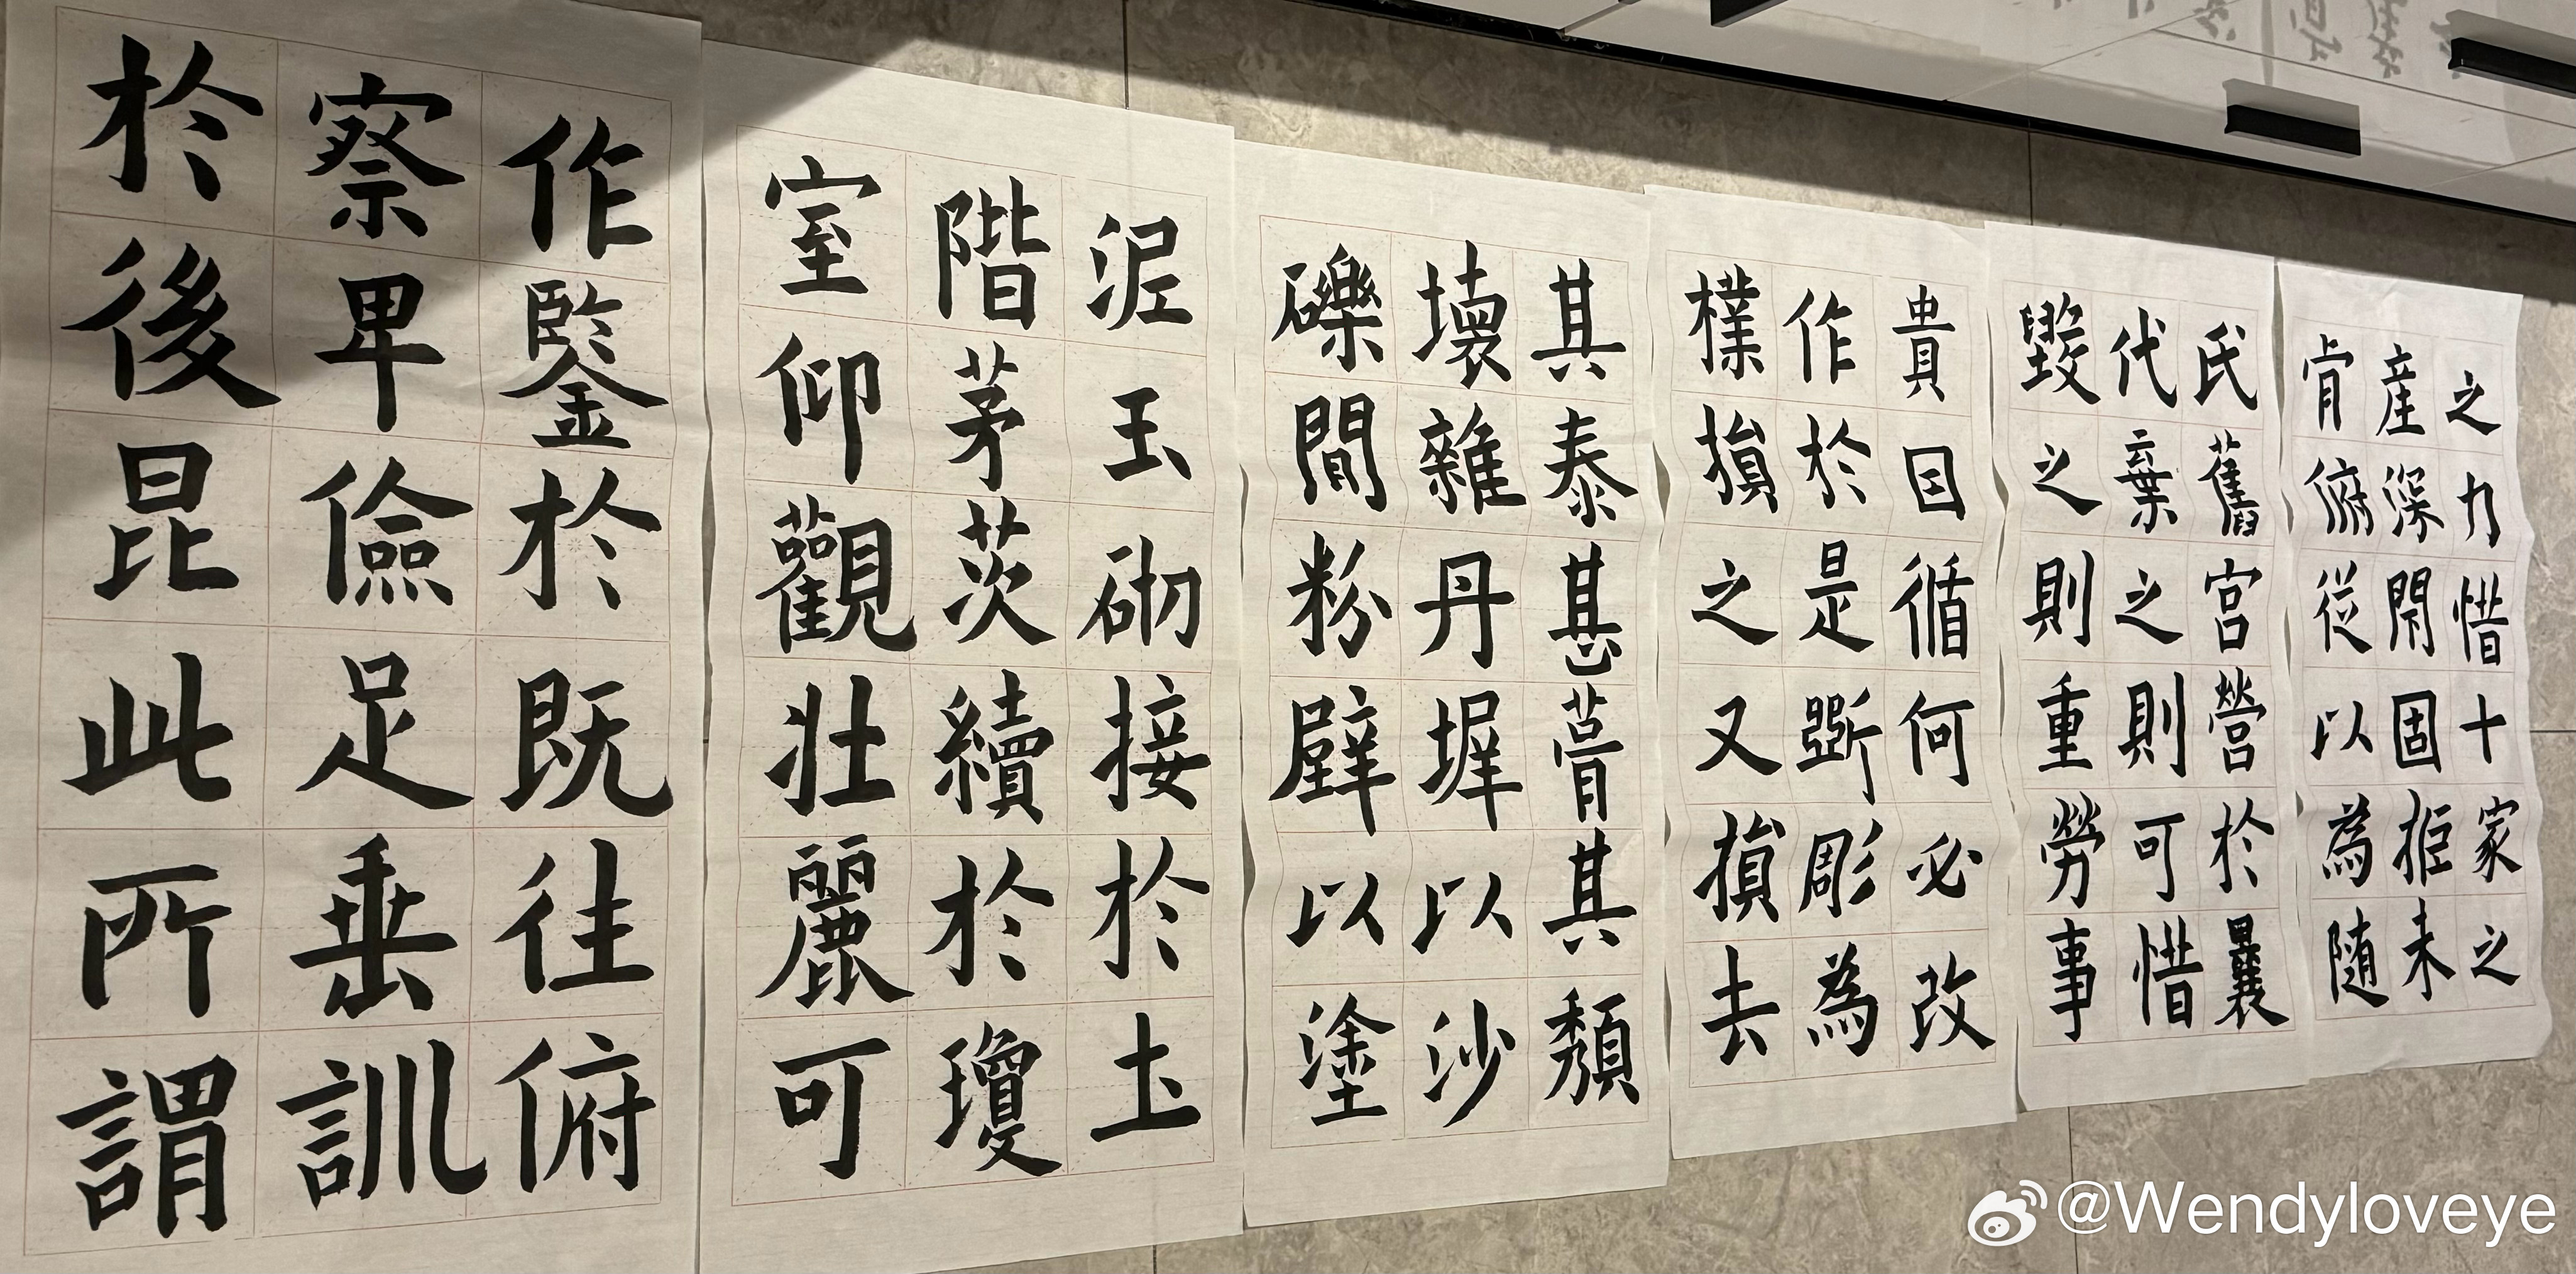 之力惜十家之
産深閇固拒未
肯俯從以為随
氏舊宫營於曩
代棄之則可惜
毀之則重勞事
貴因循何必改
作於是斲彫為
樸損之又損去
其泰甚葺其頹
壞雜丹墀以沙
礫間粉壁以塗
泥玉砌接於土
階茅茨續於瓊
室仰觀壯麗可
作鑒於既往俯
察卑儉足垂訓
於後昆此所謂
@Wendyloveye